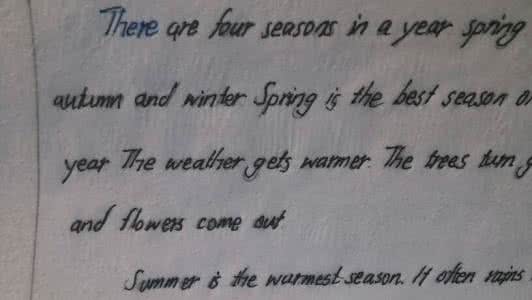 There are four seasons in a year spring
autumn and winter Spring is the best season
year The weather gets warmer. The trees turn
and flowers come out
Summer is the warmest season. It often rains